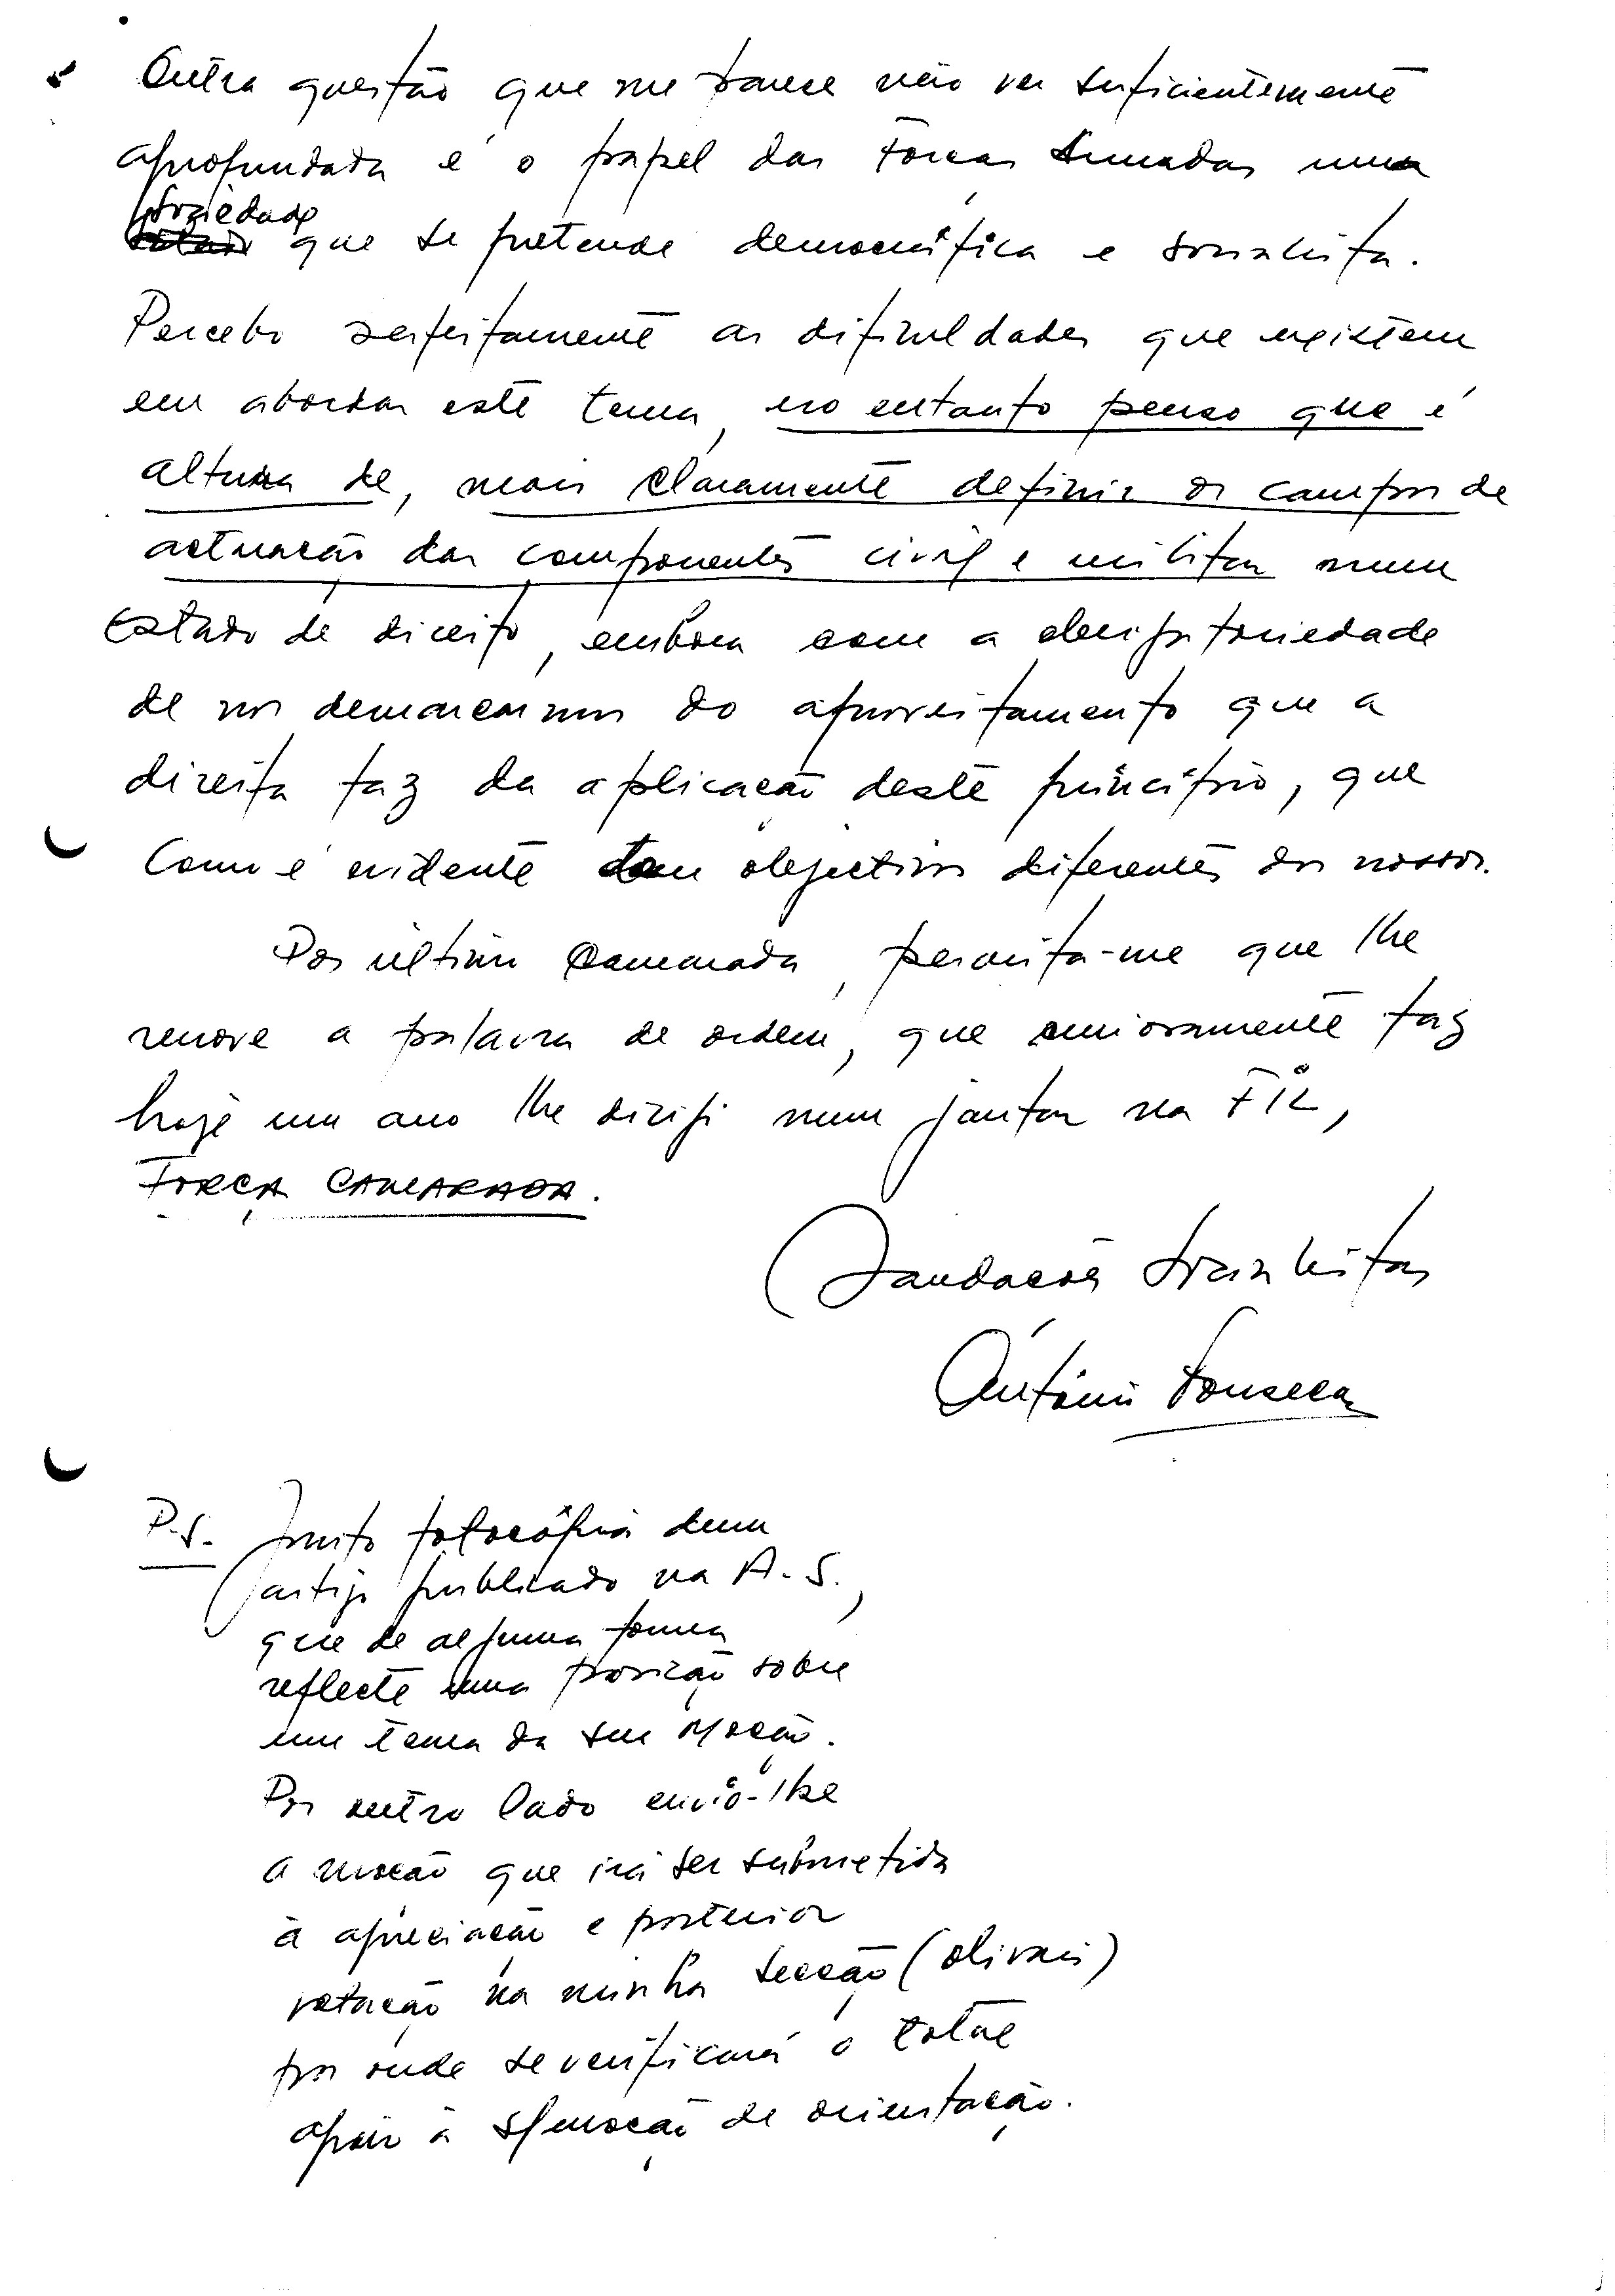 Outra questão que me parece não ver suficientemente
aprofundada é o papel das Forças Armadas numa
sociedade que se pretende democrática e socialista.
Percebo perfeitamente as dificuldades que existem
em abordar este tema, no entanto penso que é
altura de, mais claramente definir os campos de
actuação das componentes civil e militar num
Estado de direito, embora com a obrigatoriedade
de nos demarcarmos do aproveitamento que a
direita faz da aplicação deste princípio, que
como é evidente tem objectivos diferentes dos nossos.
Por último Camarada, permita-me que lhe
renove a palavra de ordem, que curiosamente faz
hoje um ano lhe dirigi num jantar na FIL,
FORÇA CAMARADA.
Saudações Socialistas
António Fonseca
P.S. Junto fotocópia dum
artigo publicado na A.S.,
que de alguma forma
reflecte uma posição sobre
um tema da sua Moção.
Por outro lado envio-lhe
a moção que irá ser submetida
à apreciação e posterior
votação na minha Secção (Olivais)
por onde se verificará o total
apoio à s/moção de orientação.